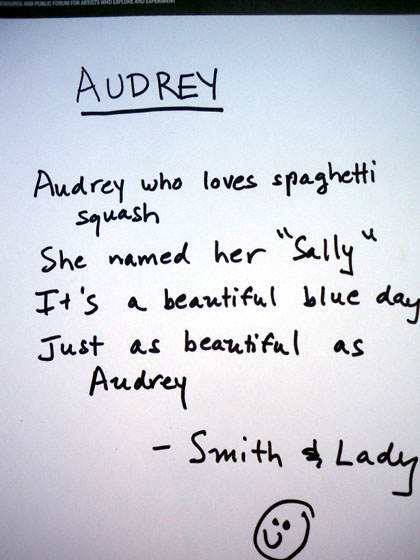 RESOURCE AND PUBLIC FORUM FOR ARTISTS WHO EXPLORE AND EXPERIMENT
AUDREY
Audrey who loves spaghetti
squash
She named her "Sally"
It's a beautiful blue day
Just as beautiful as
Audrey
- Smith & Lady